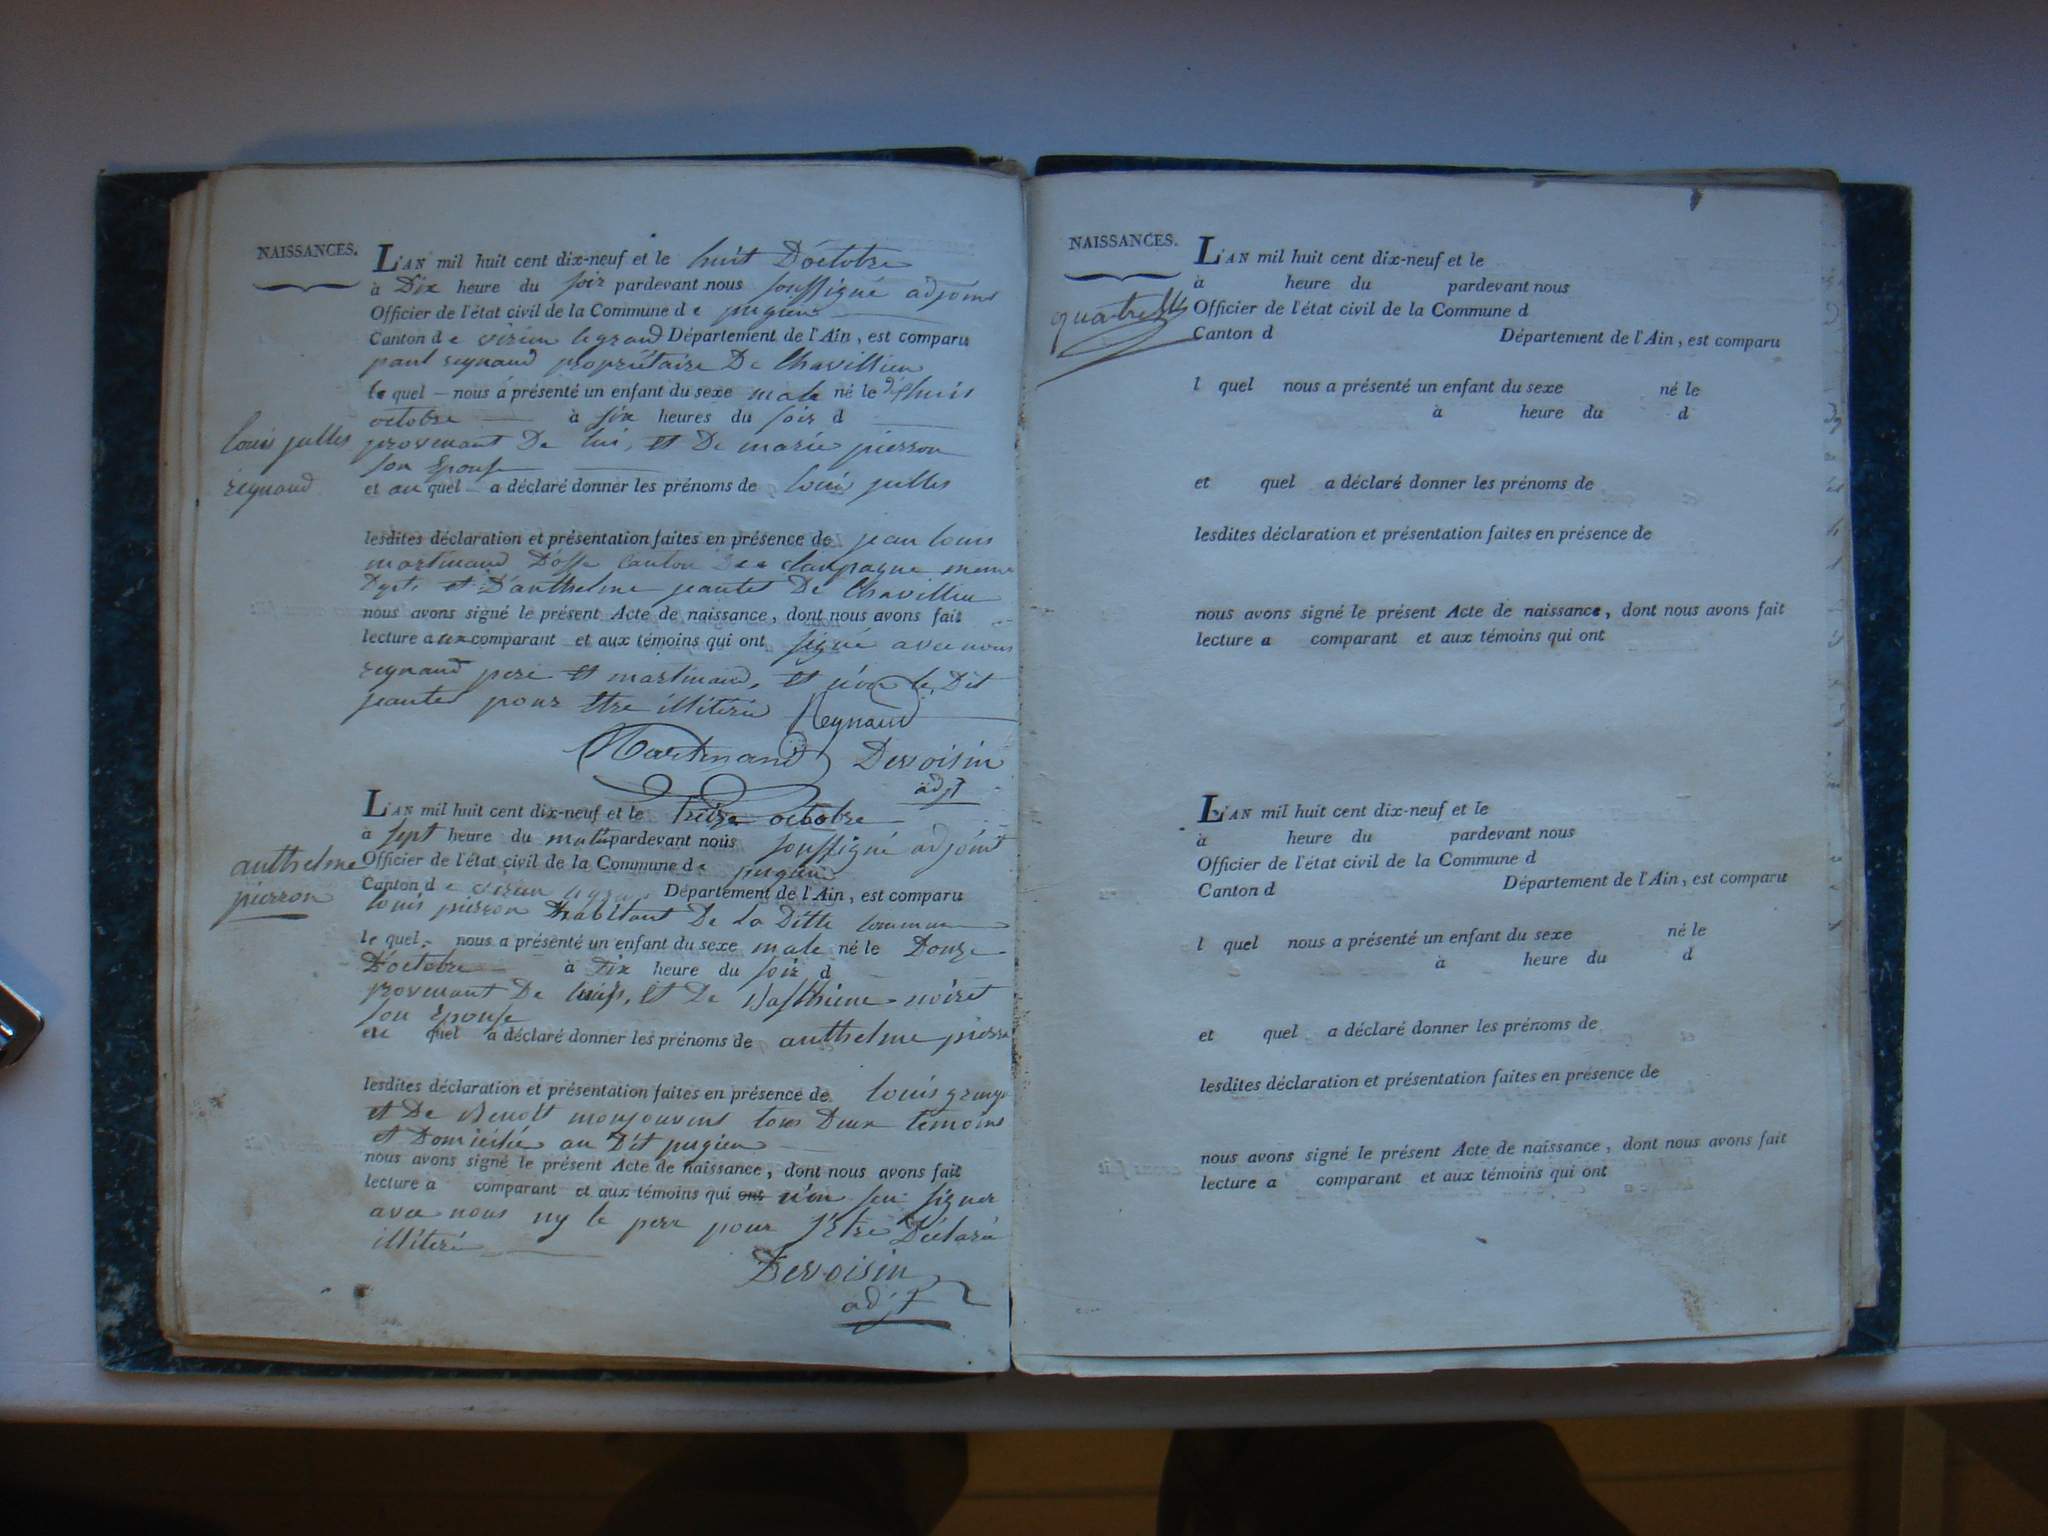 NAISSANCES.
L'AN mil huit cent dix-neuf et le huit D'octobre
à Dix heure du soir pardevant nous soussigné adjoint
Officier de l'état civil de la Commune de pugieu
Canton de virieu legrand Département de l'Ain, est comparu
paul reynaud propriétaire De Chavillieu
le quel nous a présenté un enfant du sexe male né le
octobre à six heures du soir d
louis julles
reynaud
provenant De lui, et De marie pierron
son Epouse
et au quel a déclaré donner les prénoms de louis julles
lesdites déclaration et présentation faites en présence de jean louis
martinaud Canton
et D'anthelme jeantet De Chavillieu
nous avons signé le présent Acte de naissance, dont nous avons fait
lecture aux comparant et aux témoins qui ont signé avec nous
reynaud pere et martinaud, et non le Dit
jeantet pour Etre illitéré Reynaud
Martinand Dervoisin
adjt
L'AN mil huit cent dix-neuf et le treize octobre
à sept heure du matin pardevant nous soussigné adjoint
anthelme
pierron
Officier de l'état civil de la Commune de pugieu
Canton de virieu legrand Département de l'Ain, est comparu
louis pierron habitant De La Ditte commune
le quel nous a présenté un enfant du sexe male né le Douze
D'octobre à Dix heure du soir d
provenant De et De noiret
son Epouse
au quel a déclaré donner les prénoms de anthelme pierre
lesdites déclaration et présentation faites en présence de louis
et De Benoit tous Deux temoins
et Domicilié au Dit pugieu
nous avons signé le présent Acte de naissance, dont nous avons fait
lecture a comparant et aux témoins qui ont n'on seu signer
avec nous ny le pere pour s'Etre Déclaré
illitéré
Dervoisin
adjt
NAISSANCES.
L'AN mil huit cent dix-neuf et le
à heure du pardevant nous
Officier de l'état civil de la Commune d
Canton d Département de l'Ain, est comparu
l quel nous a présenté un enfant du sexe né le
à heure du d
et quel a déclaré donner les prénoms de
lesdites déclaration et présentation faites en présence de
nous avons signé le présent Acte de naissance, dont nous avons fait
lecture a comparant et aux témoins qui ont
L'AN mil huit cent dix-neuf et le
à heure du pardevant nous
Officier de l'état civil de la Commune d
Canton d Département de l'Ain, est comparu
l quel nous a présenté un enfant du sexe né le
à heure du d
et quel a déclaré donner les prénoms de
lesdites déclaration et présentation faites en présence de
nous avons signé le présent Acte de naissance, dont nous avons fait
lecture a comparant et aux témoins qui ont